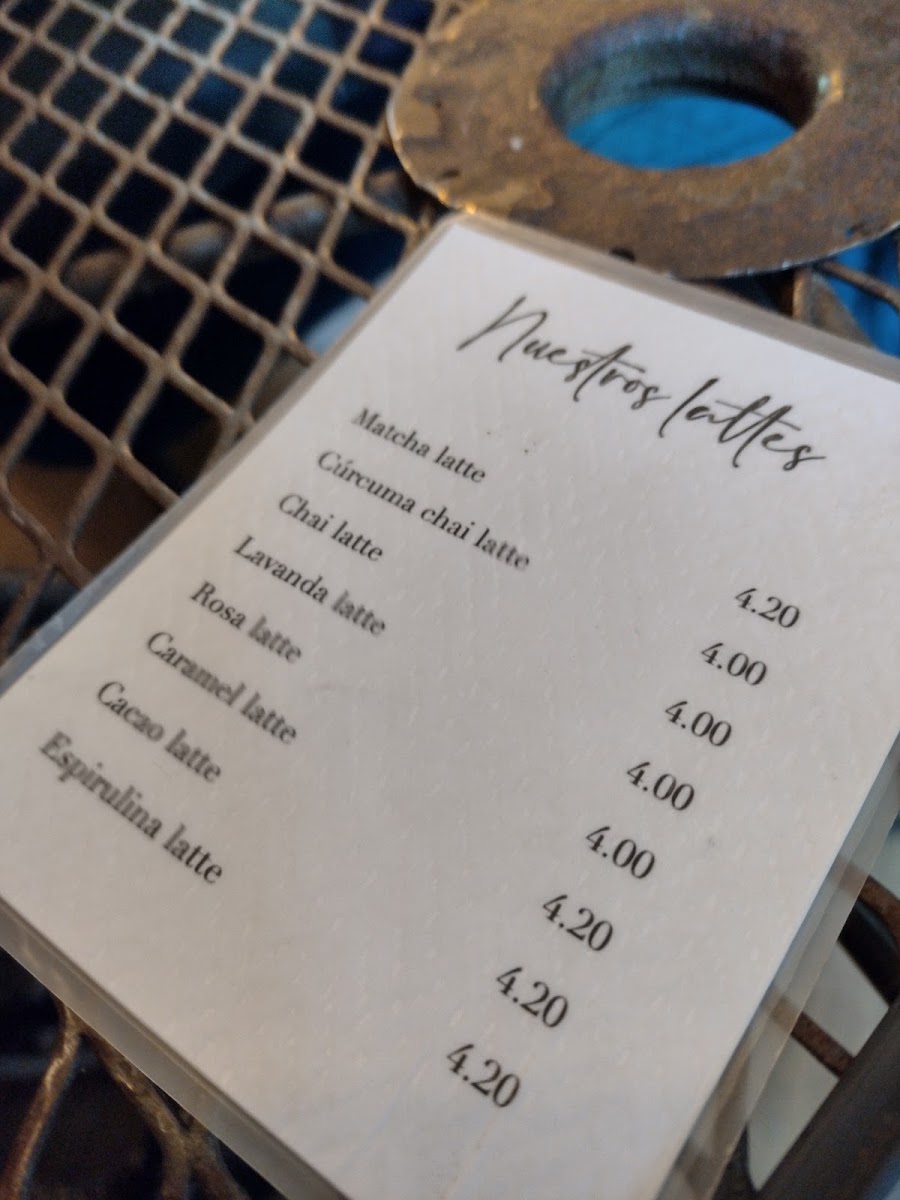 Nuestros lattes
Matcha latte 4.20
Cúrcuma chai latte 4.00
Chai latte 4.00
Lavanda latte 4.00
Rosa latte 4.00
Caramel latte 4.20
Cacao latte 4.20
Espirulina latte 4.20